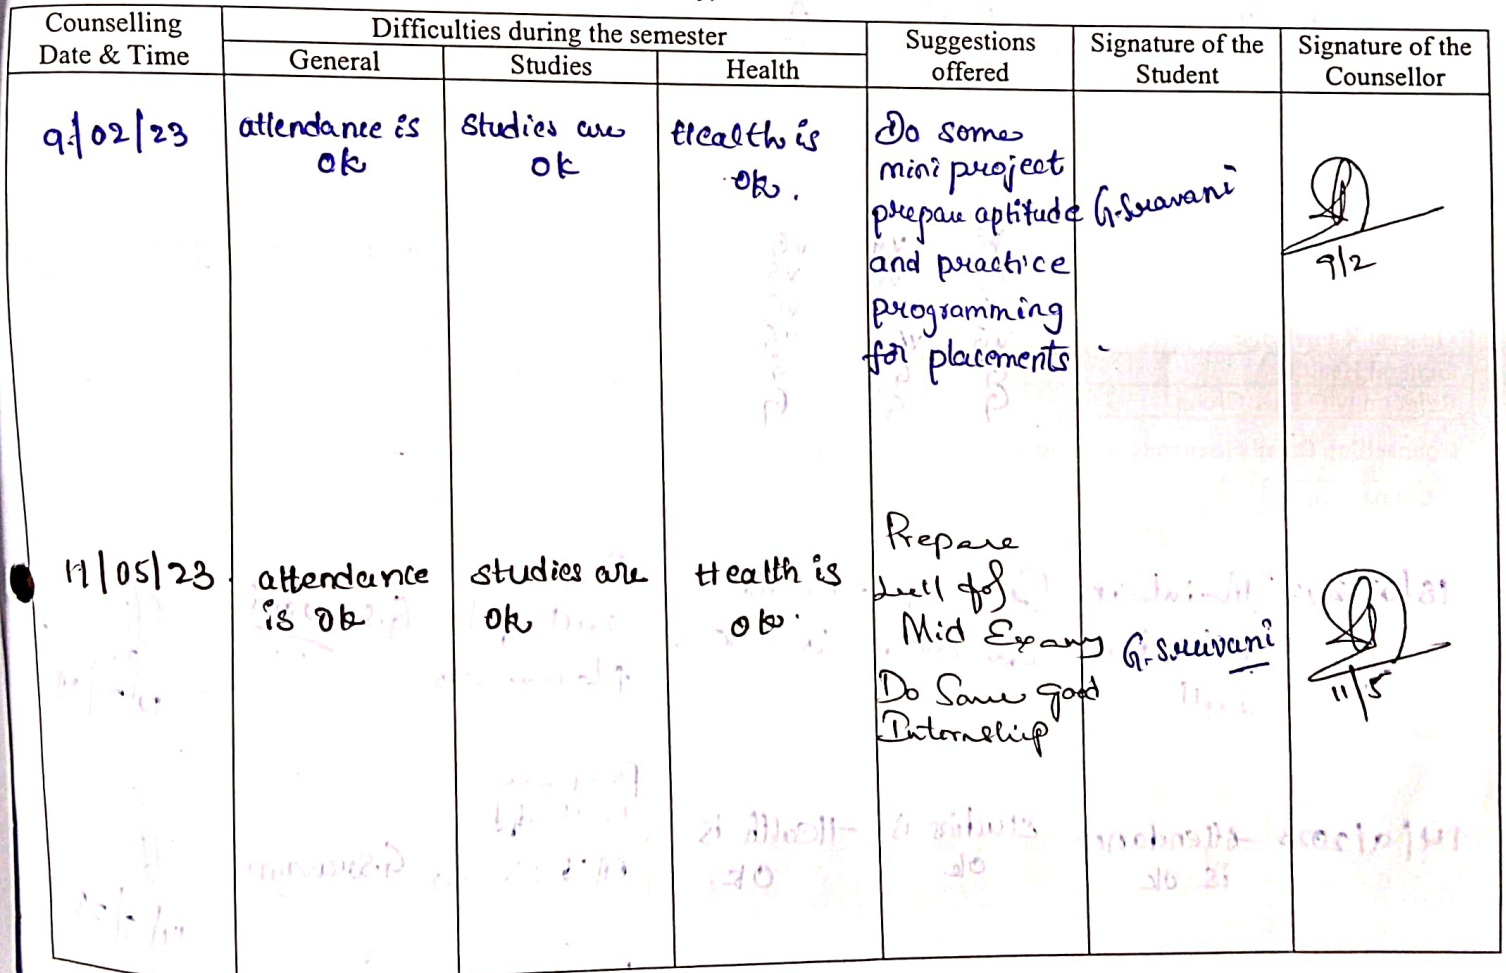 Counselling
Date & Time
Difficulties during the semester
General
Studies
Health
Suggestions
offered
Signature of the
Student
Signature of the
Counsellor
9/02/23
attendance is
ok
Studies are
ok
Health is
ok.
Do some
mini project
prepare aptitude
and practice
programming
for placements
G. Sravani
9/2
11/05/23
attendance
is ok
studies are
ok
Health is
ok.
Prepare
well for
Mid Exams
Do Some good
Internship
G. Sravani
11/5